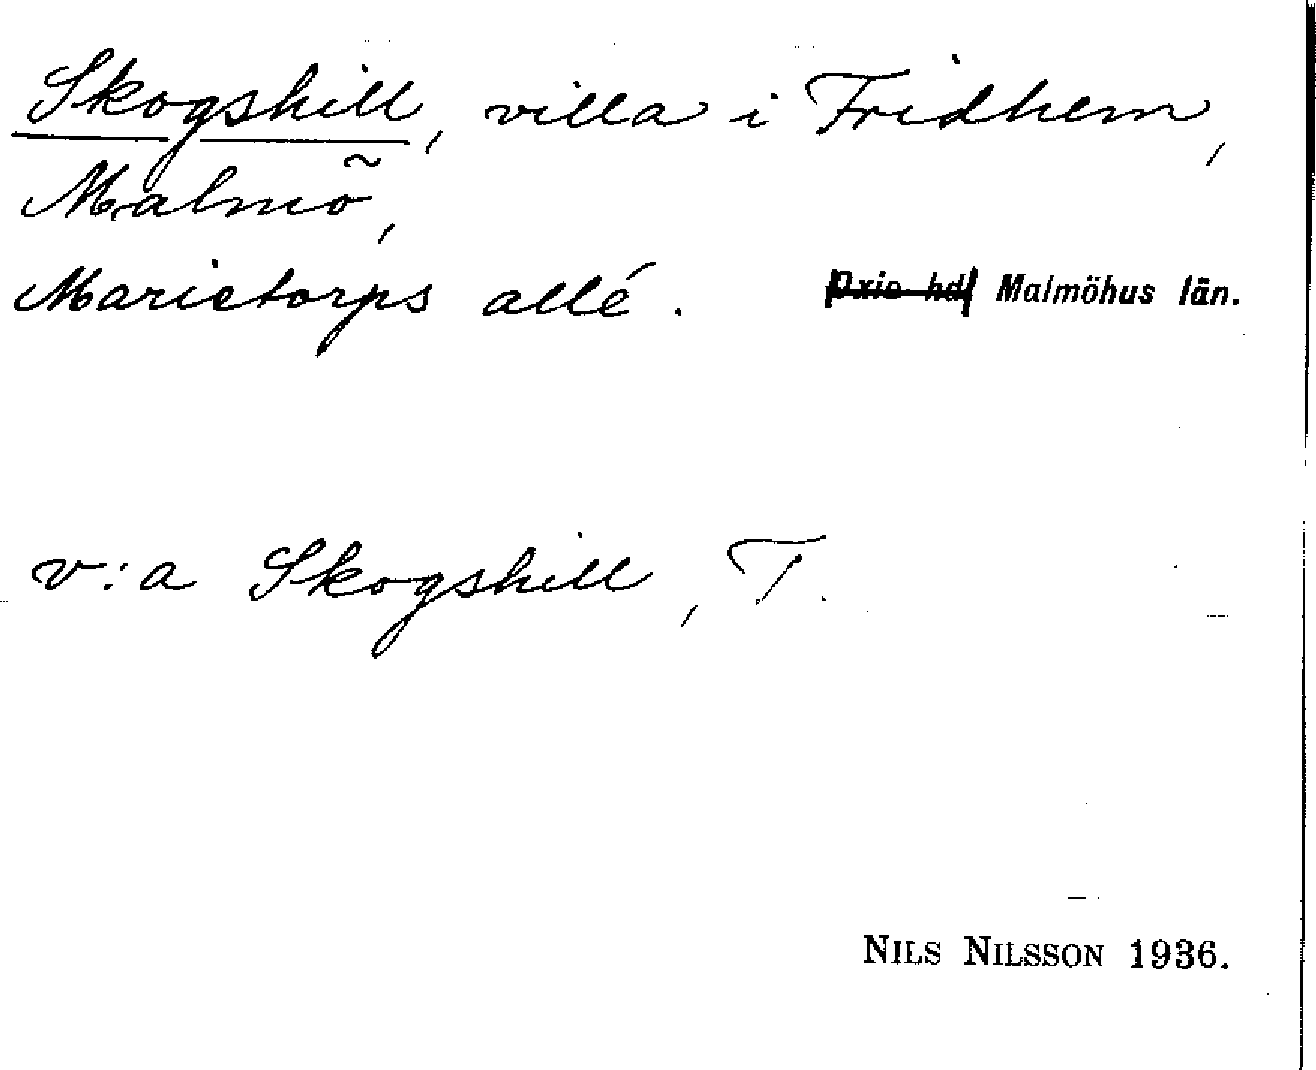 Skogshill, villa i Fridhem,
Malmö,
Marietorps allé. Oxie hd Malmöhus län.
v:a Skogshill, T.
NILS NILSSON 1936.